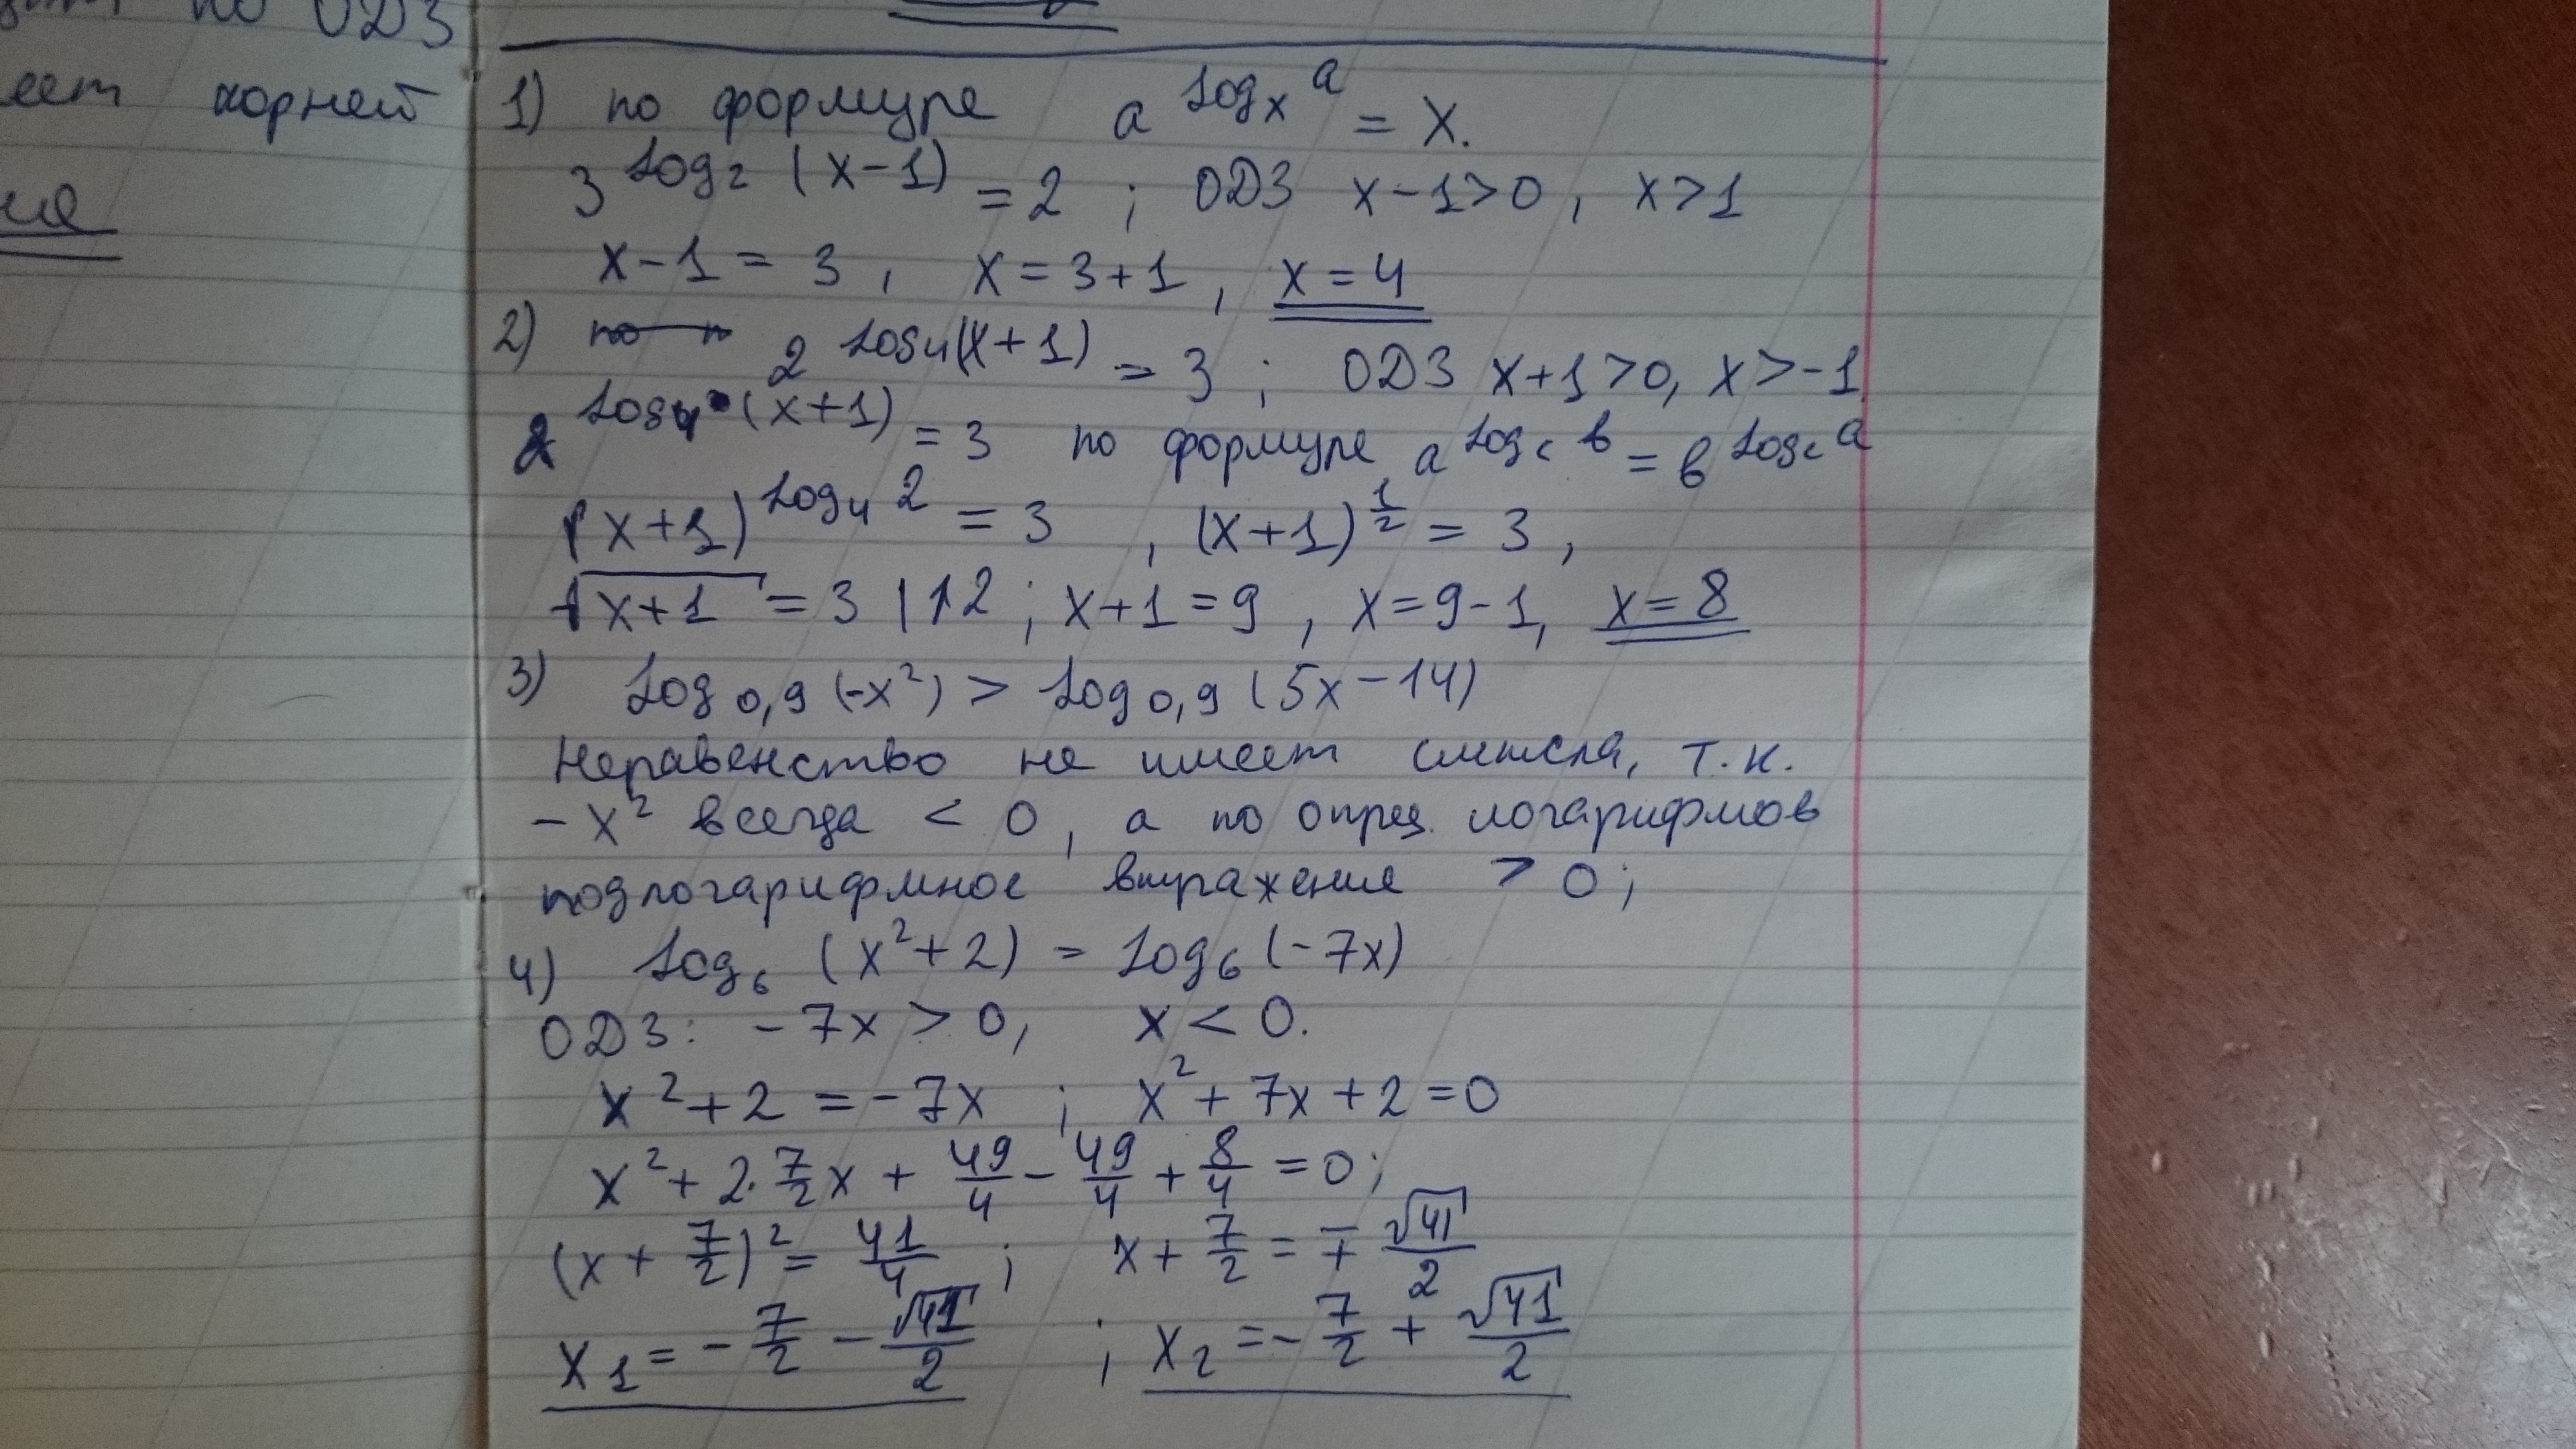 по ОДЗ
еет корней
1) по формуле a^{log_x a} = x.
3^{log_2 (x-1)} = 2 ; ОДЗ x-1>0, x>1
x-1 = 3, x = 3+1, x = 4
2) 2^{log_4(x+1)} = 3 ; ОДЗ x+1>0, x>-1
2^{log_4 (x+1)} = 3 по формуле a^{log_c в} = в^{log_c a}
(x+1)^{log_4 2} = 3 , (x+1)^{1/2} = 3 ,
√(x+1) = 3 |↑2 ; x+1 = 9 , x = 9-1, x = 8
3) log_{0,9} (-x²) > log_{0,9} (5x-14)
Неравенство не имеет смысла, т.к.
-x² всегда < 0, а по опред. логарифмов
подлогарифмное выражение > 0;
4) log_6 (x²+2) = log_6 (-7x)
ОДЗ: -7x > 0, x < 0.
x²+2 = -7x ; x²+7x+2=0
x² + 2·7/2x + 49/4 - 49/4 + 8/4 = 0;
(x + 7/2)² = 41/4 ; x + 7/2 = ∓ √41/2
x_1 = -7/2 - √41/2 ; x_2 = -7/2 + √41/2